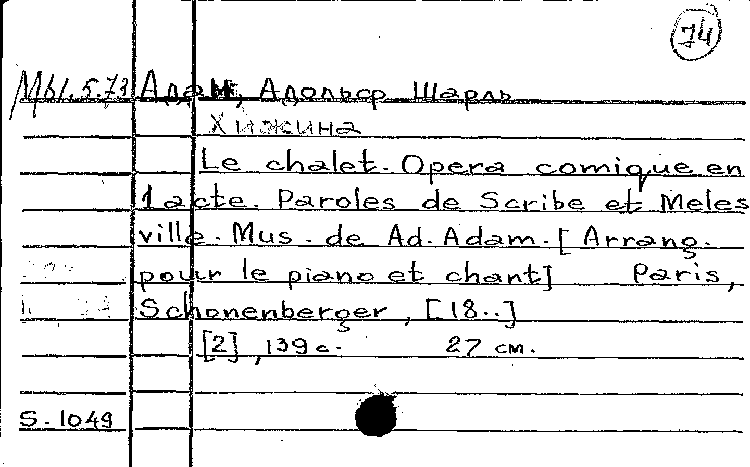 74
Мы.5.73 Адан, Адольф Шарль
Хижина
Le chalet. Opera comique en
1 acte. Paroles de Scribe et Meles
ville. Mus. de Ad. Adam. [Arrang.
pour le piano et chant] Paris,
Schonenberger, [18..]
[2], 139 с. 27 см.
S. 1049